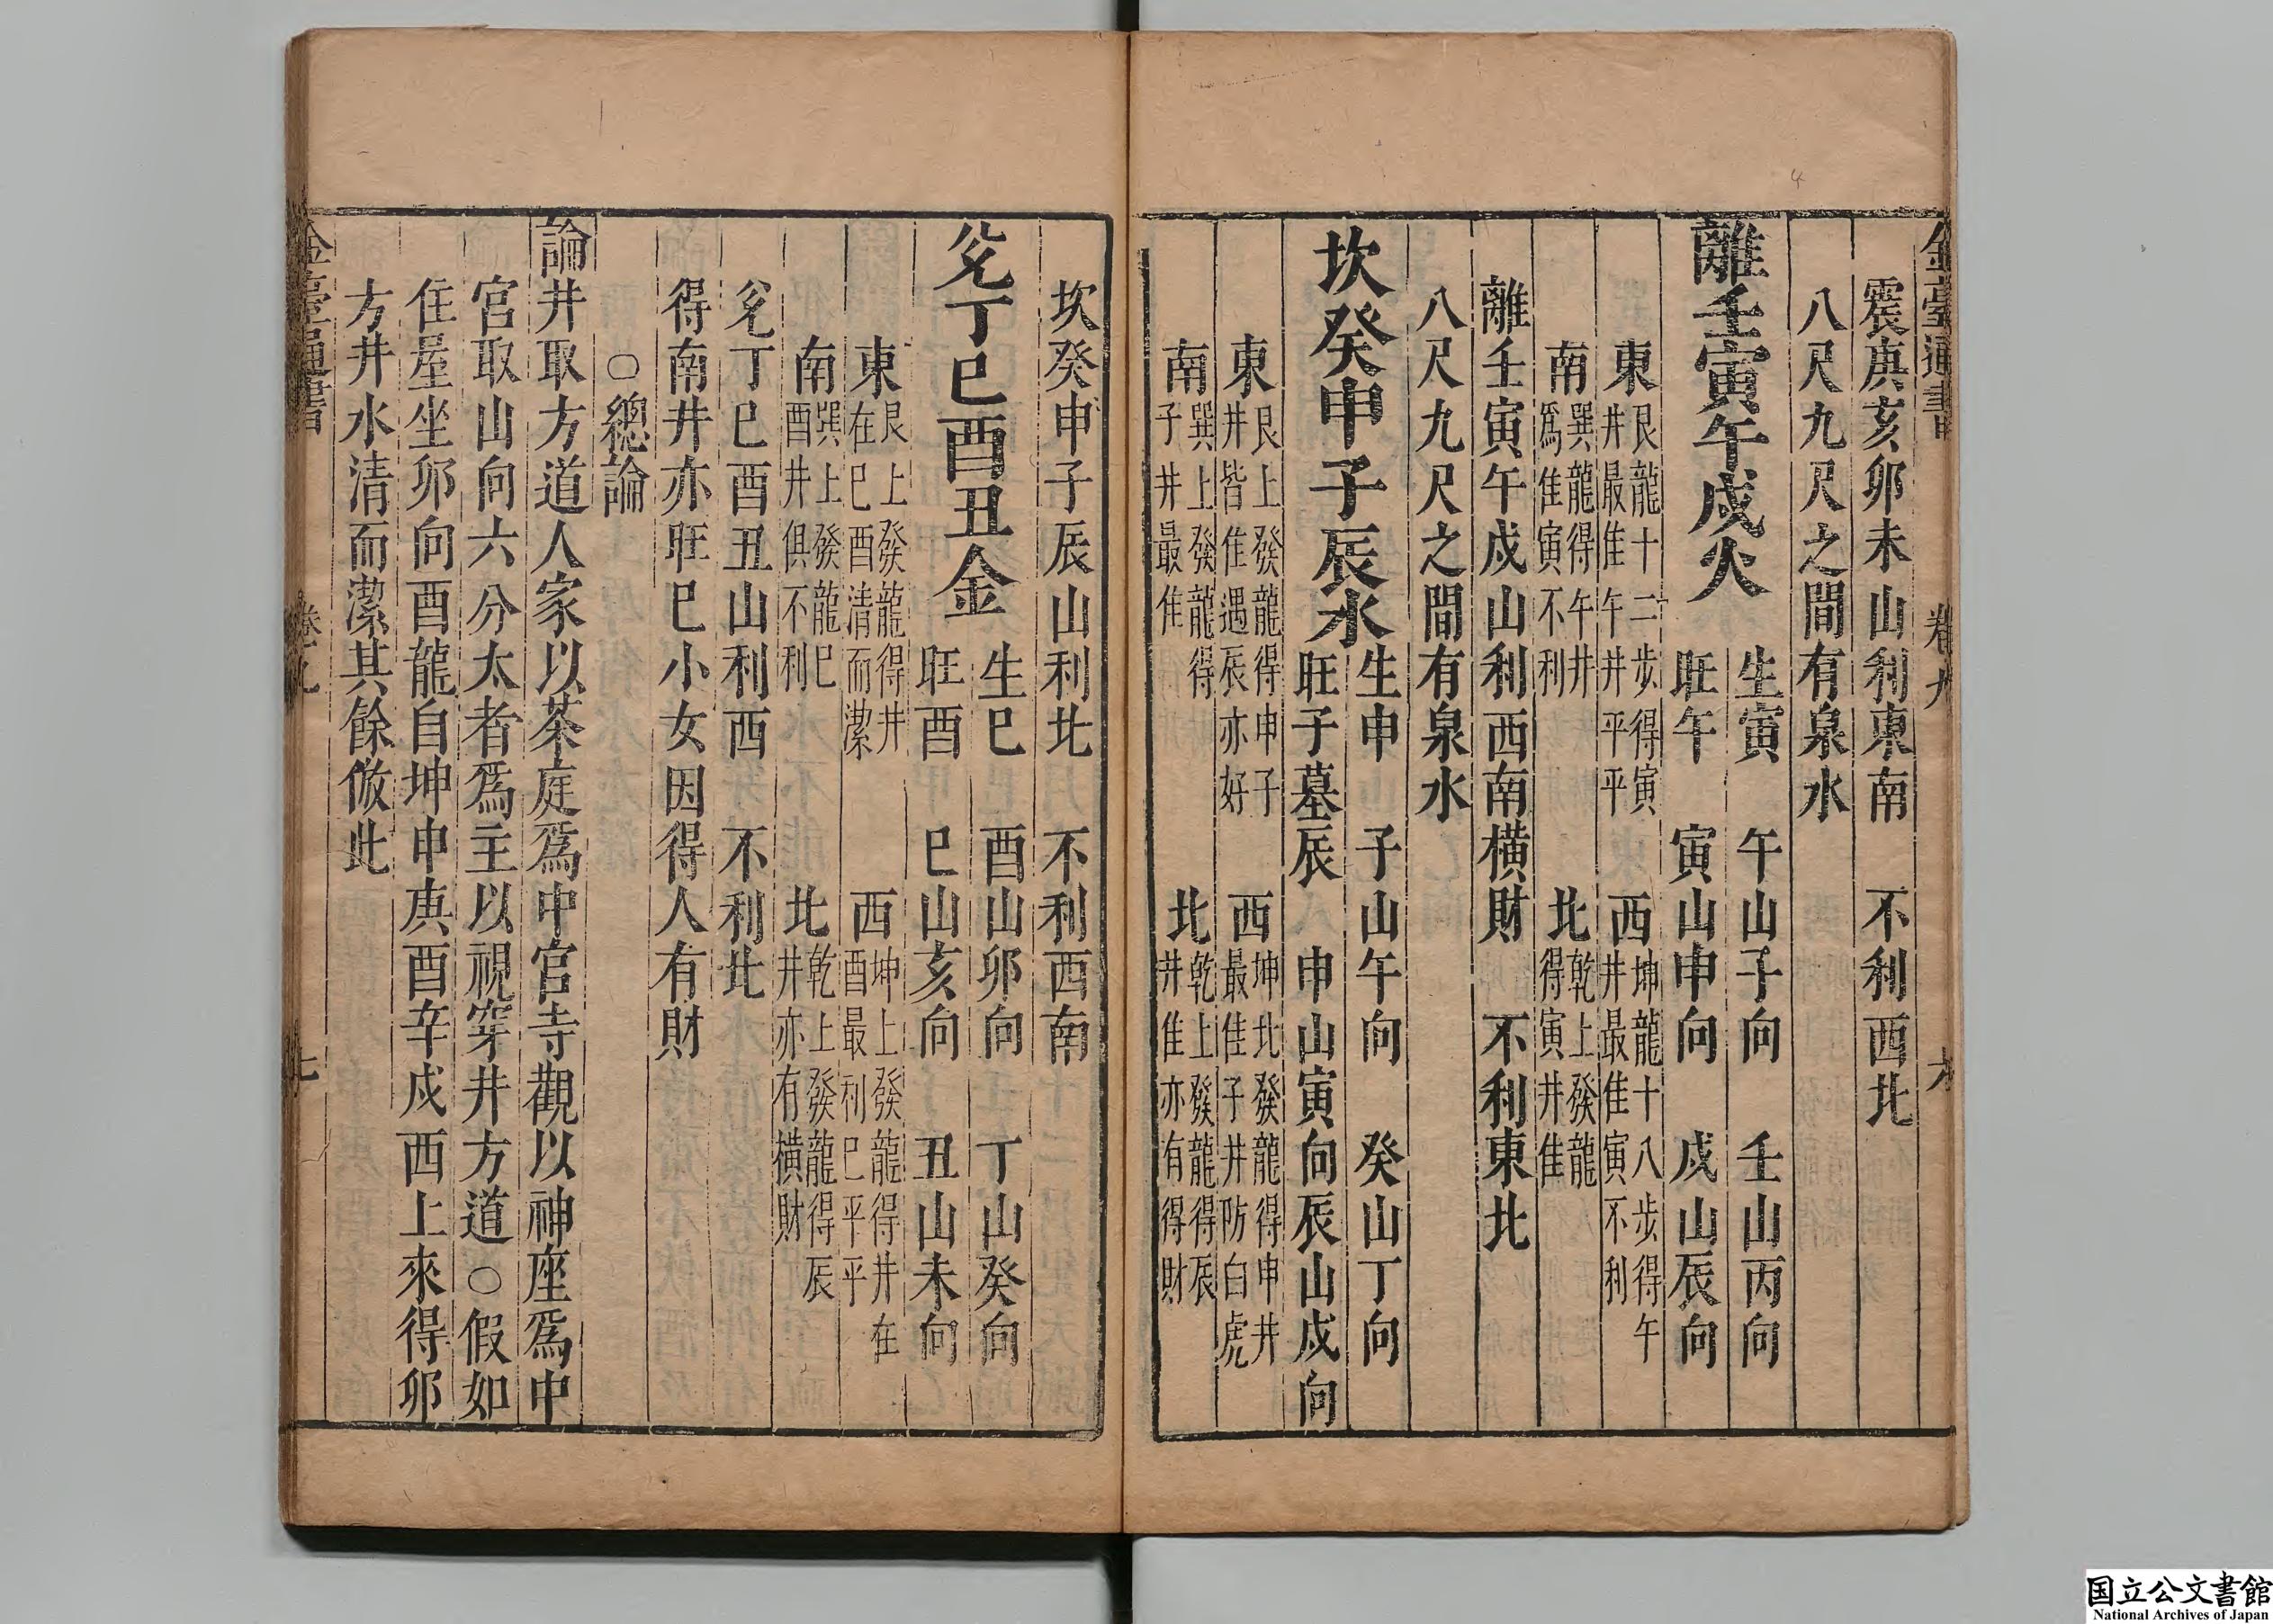 金臺通書 卷九 六
震庚亥卯未山利東南 不利西北
八尺九尺之間有泉水
離壬寅午戌火 生寅 午山子向 壬山丙向
旺午 寅山申向 戌山辰向
東 艮龍十二步得寅 西 坤龍十八步得午
井最隹午井平平 井最隹寅不利
南 巽龍得午井 北 乾上發龍
爲隹寅不利 得寅井隹
離壬寅午戌山利西南橫財 不利東北
八尺九尺之間有泉水
坎癸申子辰水 生申 子山午向 癸山丁向
旺子墓辰 申山寅向辰山戌向
東 艮上發龍得申子 西 坤北發龍得申井
井皆隹遇辰亦好 最隹子井防白虎
南 巽上發龍得 北 乾上發龍得辰
子井最隹 井隹亦有得財
坎癸申子辰山利北 不利西南
兊丁巳酉丑金 生巳 酉山卯向 丁山癸向
旺酉 巳山亥向 丑山未向
東 艮上發龍得井 西 坤上發龍得井在
在巳酉清而潔 酉最利巳平平
南 巽上發龍巳 北 乾上發龍得辰
酉井俱不利 井亦有橫財
兊丁巳酉丑山利西 不利北
得南井亦旺巳小女因得人有財
○總論
論井取方道人家以茶庭爲中宮寺觀以神座爲中
宮取山向六分太者爲主以視穿井方道○假如
住屋坐卯向酉龍自坤申庚酉辛戌西上來得卯
方井水清而潔其餘倣此
金臺通書 卷之九 七
国立公文書館
National Archives of Japan